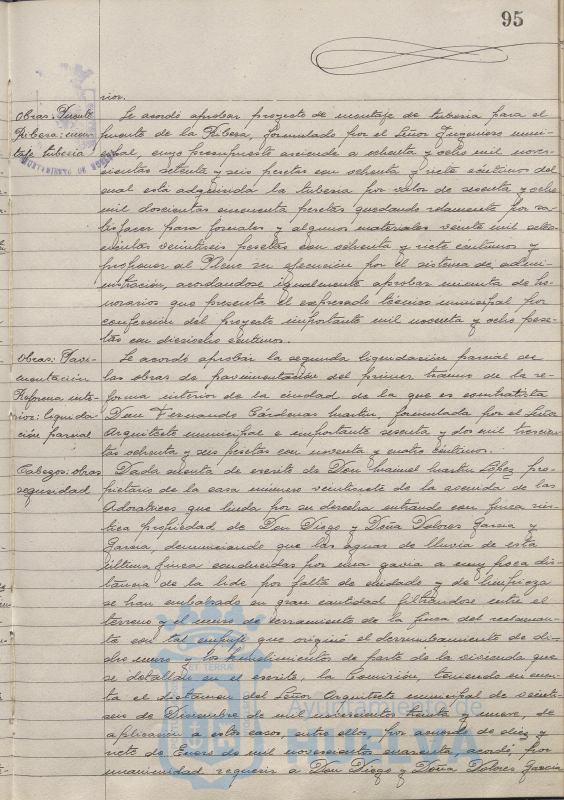 95
rior.
Obras: Puente
Ribera: mon-
taje tubería
Se acordó aprobar proyecto de montaje de tubería para el
puente de la Ribera, formulado por el Señor Ingeniero muni-
cipal, cuyo presupuesto asciende a ochenta y ocho mil nove-
cientas setenta y seis pesetas con ochenta y siete céntimos del
cual está adquirida la tubería por valor de sesenta y ocho
mil doscientas cincuenta pesetas quedando solamente por sa-
tisfacer para jornales y algunos materiales veinte mil sete-
cientas veintiseis pesetas con ochenta y siete céntimos y
proponer al Pleno su ejecución por el sistema de admi-
nistración, acordándose igualmente aprobar minuta de ho-
norarios que presenta el expresado técnico municipal por
confección del proyecto importante mil noventa y ocho pese-
tas con dieciocho céntimos.
Obras: Pavi-
mentación
Reforma inte-
rior: liquida-
ción parcial
Se acordó aprobar la segunda liquidación parcial de
las obras de pavimentación del primer tramo de la re-
forma interior de la ciudad de la que es contratista
Don Fernando Cárdenas Martín, formulada por el Señor
Arquitecto municipal e importante sesenta y dos mil trescien-
tas ochenta y seis pesetas con noventa y cuatro céntimos.
Cabezos: obras
seguridad
Dada cuenta de escrito de Don Manuel Martín López pro-
pietario de la casa número veintisiete de la avenida de las
Adoratrices que linda por su derecha entrando con finca rús-
tica propiedad de Don Diego y Doña Dolores García y
García, denunciando que las aguas de lluvia de esta
última finca conducidas por una gavia a muy poca dis-
tancia de la linde por falta de cuidado y de limpieza
se han embalsado en gran cantidad filtrándose entre el
terreno y el muro de cerramiento de la finca del reclaman-
te con tal empuje que originó el derrumbamiento de di-
cho muro y los hundimientos de parte de la vivienda que
se detallan en el escrito, la Comisión, teniendo en cuen-
ta el dictamen del Señor Arquitecto municipal de veinti-
seis de Diciembre de mil novecientos treinta y nueve, de
aplicación a estos casos, entre ellos, por acuerdo de diez y
siete de Enero de mil novecientos cuarenta acordó por
unanimidad requerir a Don Diego y Doña Dolores García
Ayuntamiento de
HUELVA